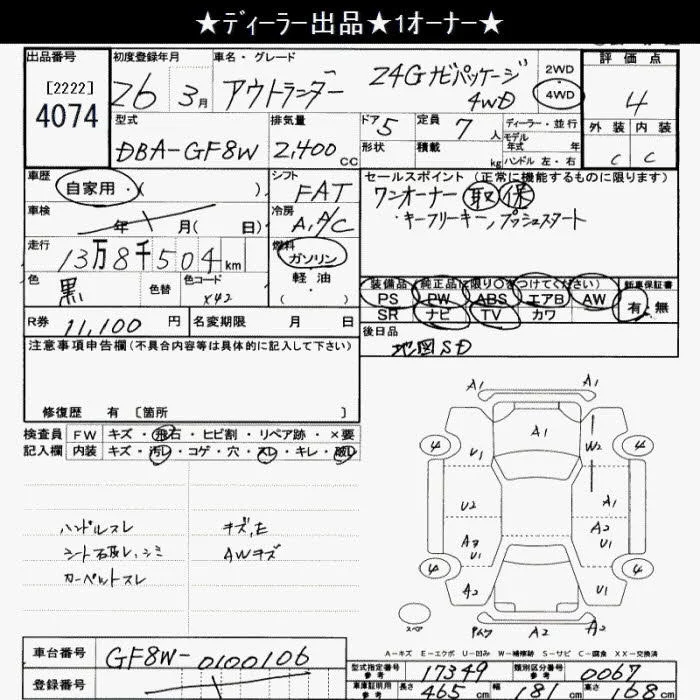 ★ディーラー出品★1オーナー★
出品番号
[2222]
4074
初度登録年月
26年 3月
車名・グレード
アウトランダー 24Gナビパッケージ
4WD
2WD
4WD
評価点
4
型式
DBA-GF8W
排気量
2,400cc
ドア 5
形状
定員 7人
積載 kg
ディーラー・並行
モデル
年式 年
ハンドル 左・右
外装 内装
C C
車歴
自家用・( )
シフト
FAT
セールスポイント(正常に機能するものに限ります)
ワンオーナー 取 保
・キーフリーキー, プッシュスタート
車検
年 月( 日)
冷房
A,A/C
走行
13万8千504km
燃料
ガソリン
軽油
( )
色
黒
色替
色コード
X42
装備品(純正品に限り○をつけてください)
PS PW ABS エアB AW
SR ナビ TV カワ
新車保証書
有・無
R券 11,100円
名変期限 月 日
後日品
地図SD
注意事項申告欄(不具合内容等は具体的に記入して下さい)
修復歴 有 〔箇所 〕
検査員 FW キズ・飛石・ヒビ割・リペア跡・×要
記入欄 内装 キズ・汚レ・コゲ・穴・スレ・キレ・破レ
ハンドルスレ
シート破レ、シミ
カーペットスレ
キズ,E
AWキズ
A1 A1
A1
4 4
U1 W2
U2 A1
A2 U1
A2 U1
4 4
A2 U1
スペア
A2 A2
A-キズ E-エクボ U-凹み W-補修跡 S-サビ C-腐食 XX-交換済
車台番号 GF8W-0100106
登録番号
型式指定番号 参考 17349
類別区分番号 参考 0067
車庫証明用 参考 長さ 465cm 幅 181cm 高さ 168cm